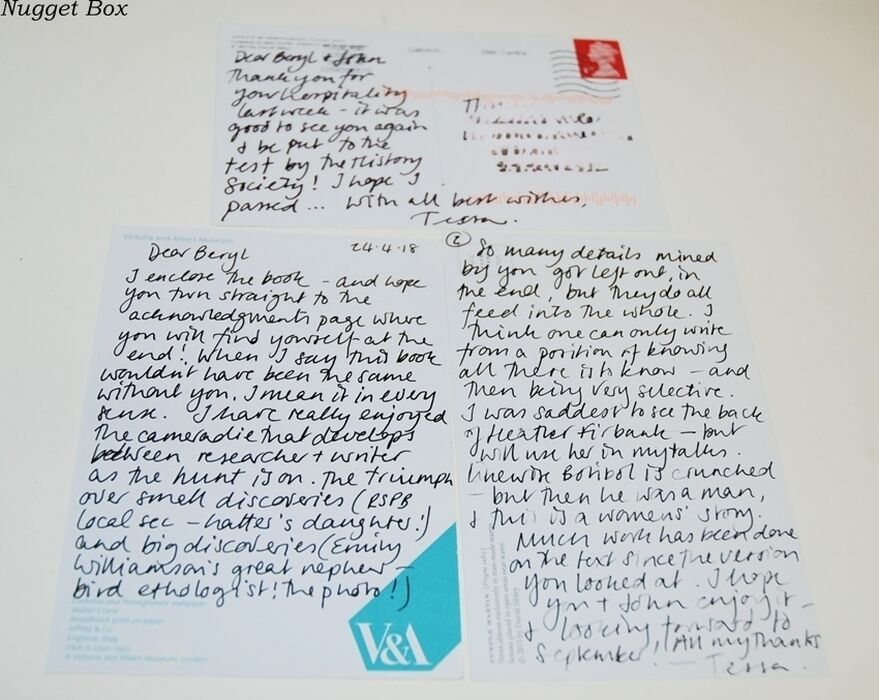 Nugget Box
Dear Beryl + John
Thank you for
your hospitality
last week - it was
good to see you again
& be put to the
test by the History
Society! I hope I
passed... With all best wishes,
Tessa.
Victoria and Albert Museum
24.4.18
Dear Beryl
I enclose the book - and hope
you turn straight to the
acknowledgments page where
you will find yourself at the
end! When I say this book
wouldn't have been the same
without you, I mean it in every
sense. I have really enjoyed
the cameradie that develops
between researcher + writer
as the hunt is on. The triumph
over small discoveries (RSPB
local sec - hatter's daughter!)
and big discoveries (Emily
Williamson's great nephew -
bird ethologist! the photo!)
wallpaper
Walter Crane
Woodblock print on paper
Jeffrey & Co.
England, 1899
© Victoria and Albert Museum, London
V&A
2
So many details mined
by you got left out, in
the end, but they do all
feed into the whole. I
think one can only write
from a position of knowing
all there is to know - and
then being very selective.
I was saddest to see the back
of Heather Firbank - but
will use her in my talks.
Likewise Botibol is crunched
- but then he was a man,
& this is a womens' story.
Much work has been done
on the text since the version
you looked at. I hope
you + John enjoy it -
& looking forward to
September! All my thanks
- Tessa.
PURPLE MARTIN